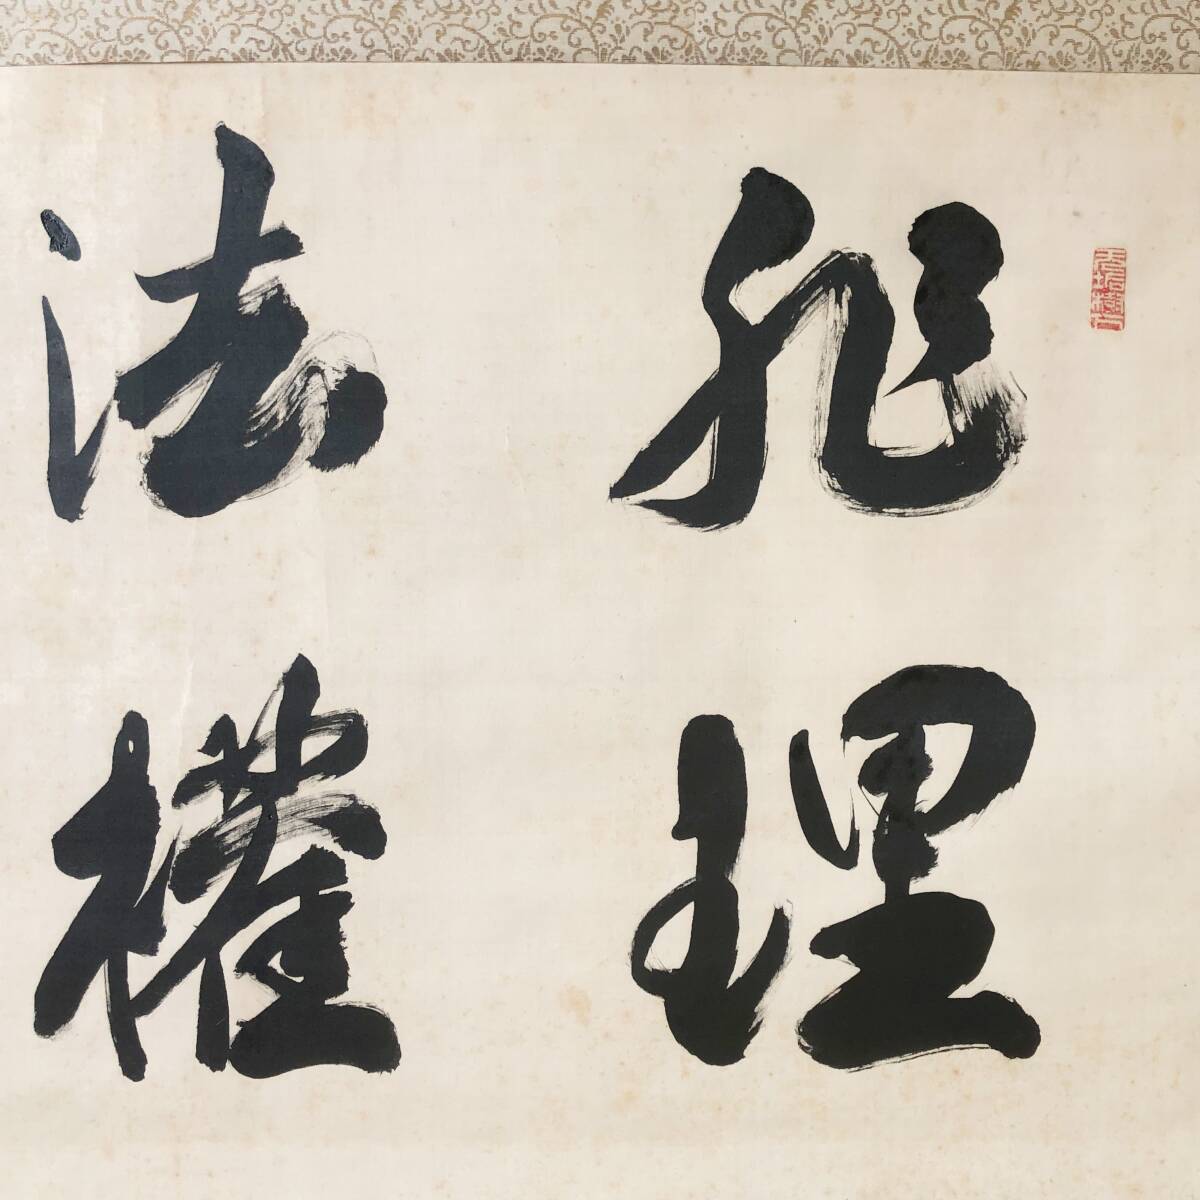 非理
法權